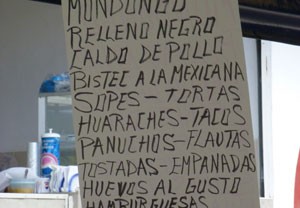 MONDONGO
RELLENO NEGRO
CALDO DE POLLO
BISTEC A LA MEXICANA
SOPES - TORTAS
HUARACHES - TACOS
PANUCHOS - FLAUTAS
TOSTADAS - EMPANADAS
HUEVOS AL GUSTO
HAMBURGUESAS